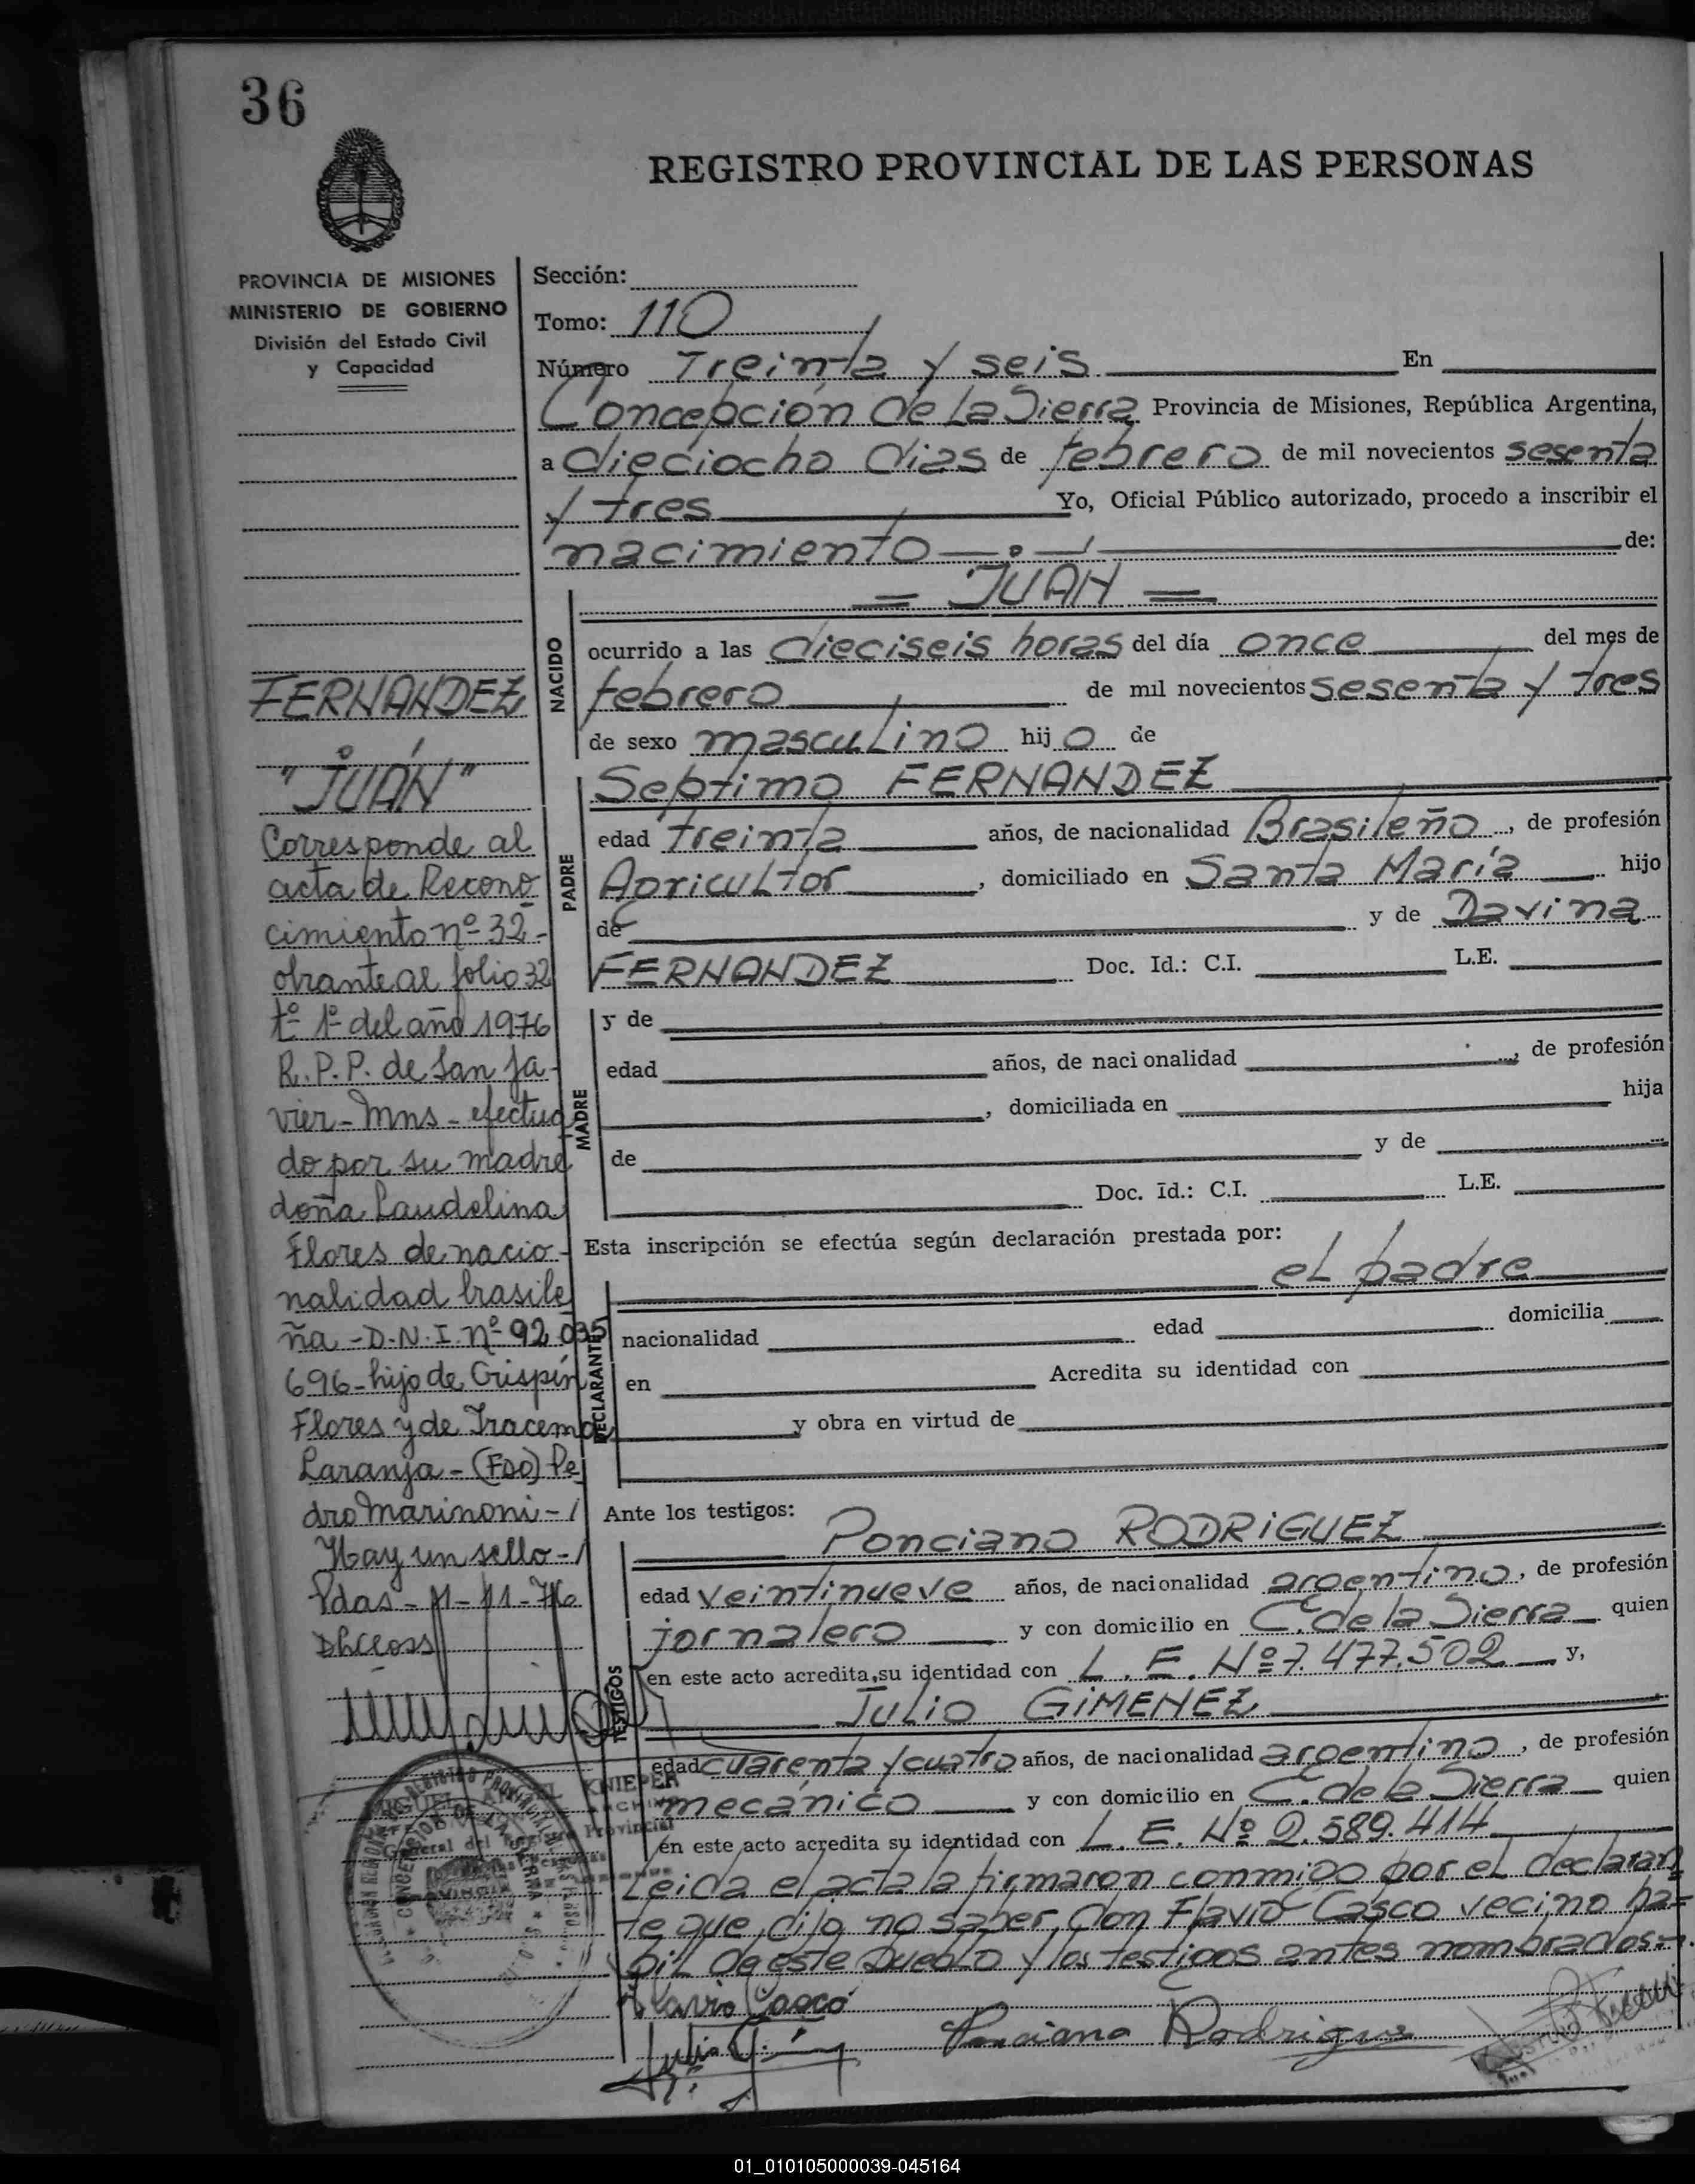 36
REGISTRO PROVINCIAL DE LAS PERSONAS
PROVINCIA DE MISIONES
MINISTERIO DE GOBIERNO
División del Estado Civil
y Capacidad
Sección:
Tomo: 110
Número Treinta y seis En
Concepción de la Sierra Provincia de Misiones, República Argentina,
a dieciocho dias de febrero de mil novecientos sesenta
y tres Yo, Oficial Público autorizado, procedo a inscribir el
nacimiento de:
= JUAN =
NACIDO
ocurrido a las dieciseis horas del día once del mes de
febrero de mil novecientos sesenta y tres
de sexo masculino hijo de
PADRE
Septimo FERNANDEZ
edad treinta años, de nacionalidad Brasileño, de profesión
Agricultor, domiciliado en Santa María hijo
de y de Davina
FERNANDEZ Doc. Id.: C.I. L.E.
MADRE
y de
edad años, de naci onalidad, de profesión
, domiciliada en hija
de y de
Doc. Id.: C.I. L.E.
Esta inscripción se efectúa según declaración prestada por:
el padre
DECLARANTE
nacionalidad edad domicilia
en Acredita su identidad con
y obra en virtud de
Ante los testigos:
TESTIGOS
Ponciano RODRIGUEZ
edad veintinueve años, de nacionalidad argentino, de profesión
jornalero y con domicilio en C. de la Sierra quien
en este acto acredita su identidad con L. E. Nº 7.477.502 y,
Julio GIMENEZ
edad cuarenta y cuatro años, de nacionalidad argentino, de profesión
mecánico y con domicilio en C. de la Sierra quien
en este acto acredita su identidad con L. E. Nº 2.589.414
Leida el acta la firmaron conmigo por el declaran
te que dijo no saber, don Flavio Casco vecino há=
bil de este pueblo y los testigos antes nombrados=
Flavio Casco
Ponciano Rodrigue
Julio
FERNANDEZ
"JUÁN"
Corresponde al
acta de Recono
cimiento nº 32-
obrante al folio 32
tº 1º del año 1976
R.P.P. de San Ja-
vier-Mns-efectua
do por su madre
doña Laudelina
Flores de nacio-
nalidad brasile
ña-D.N.I. nº 92.035
696-hijo de Crispín
Flores y de Iracema
Laranja-(Fdo) Pe
dro Marinoni-/
Hay un sello-/
Pdas-11-11-76
MIGUEL KNIEPER
General del Registro Provincial
01_010105000039-045164